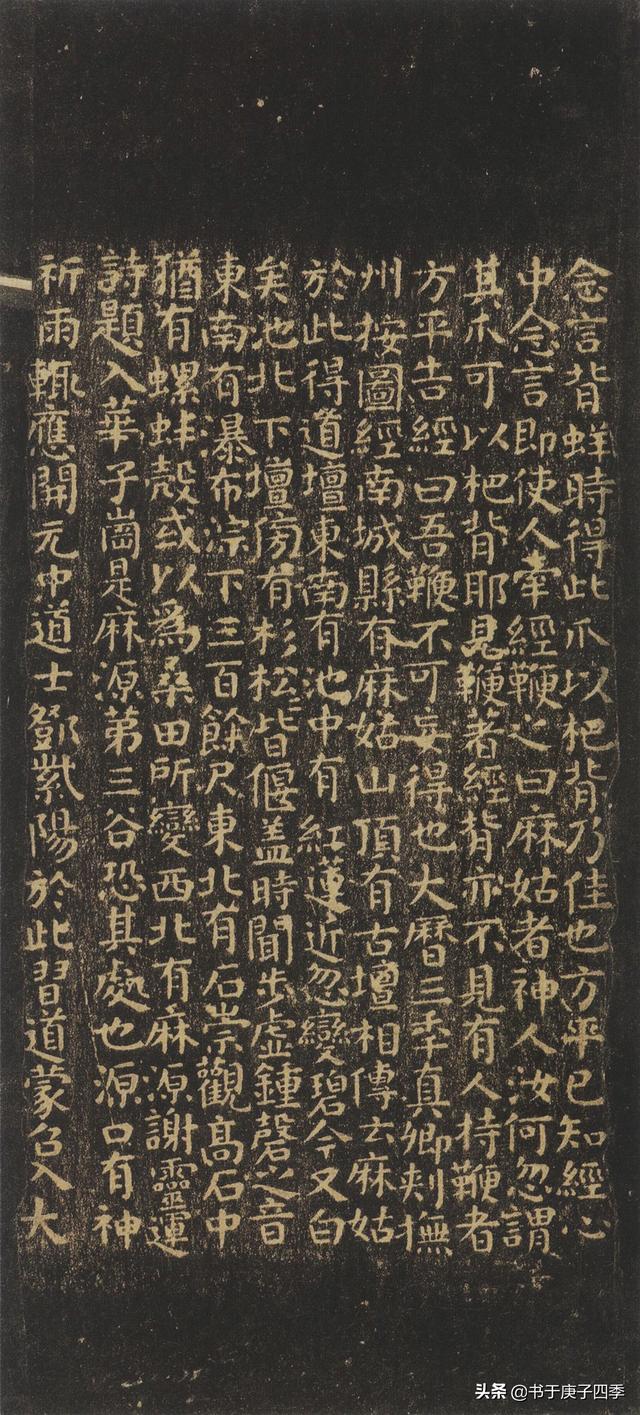 念言背蛘時得此爪以杷背乃佳也方平已知經心
中念言即使人牽經鞭之曰麻姑者神人汝何忽謂
其爪可以杷背耶見鞭著經背亦不見有人持鞭者
方平告經曰吾鞭不可妄得也大曆三年真卿刾撫
州按圖經南城縣有麻姑山頂有古壇相傳云麻姑
於此得道壇東南有池中有紅蓮近忽變碧今又白
矣池北下壇傍有杉松皆偃盖時聞步虛鍾磬之音
東南有瀑布淙下三百餘尺東北有石崇觀高石中
猶有螺蚌殼或以為桑田所變西北有麻源謝靈運
詩題入華子崗是麻源第三谷恐其處也源口有神
祈雨輒應開元中道士鄧紫陽於此習道蒙召入大
头条 @书于庚子四季